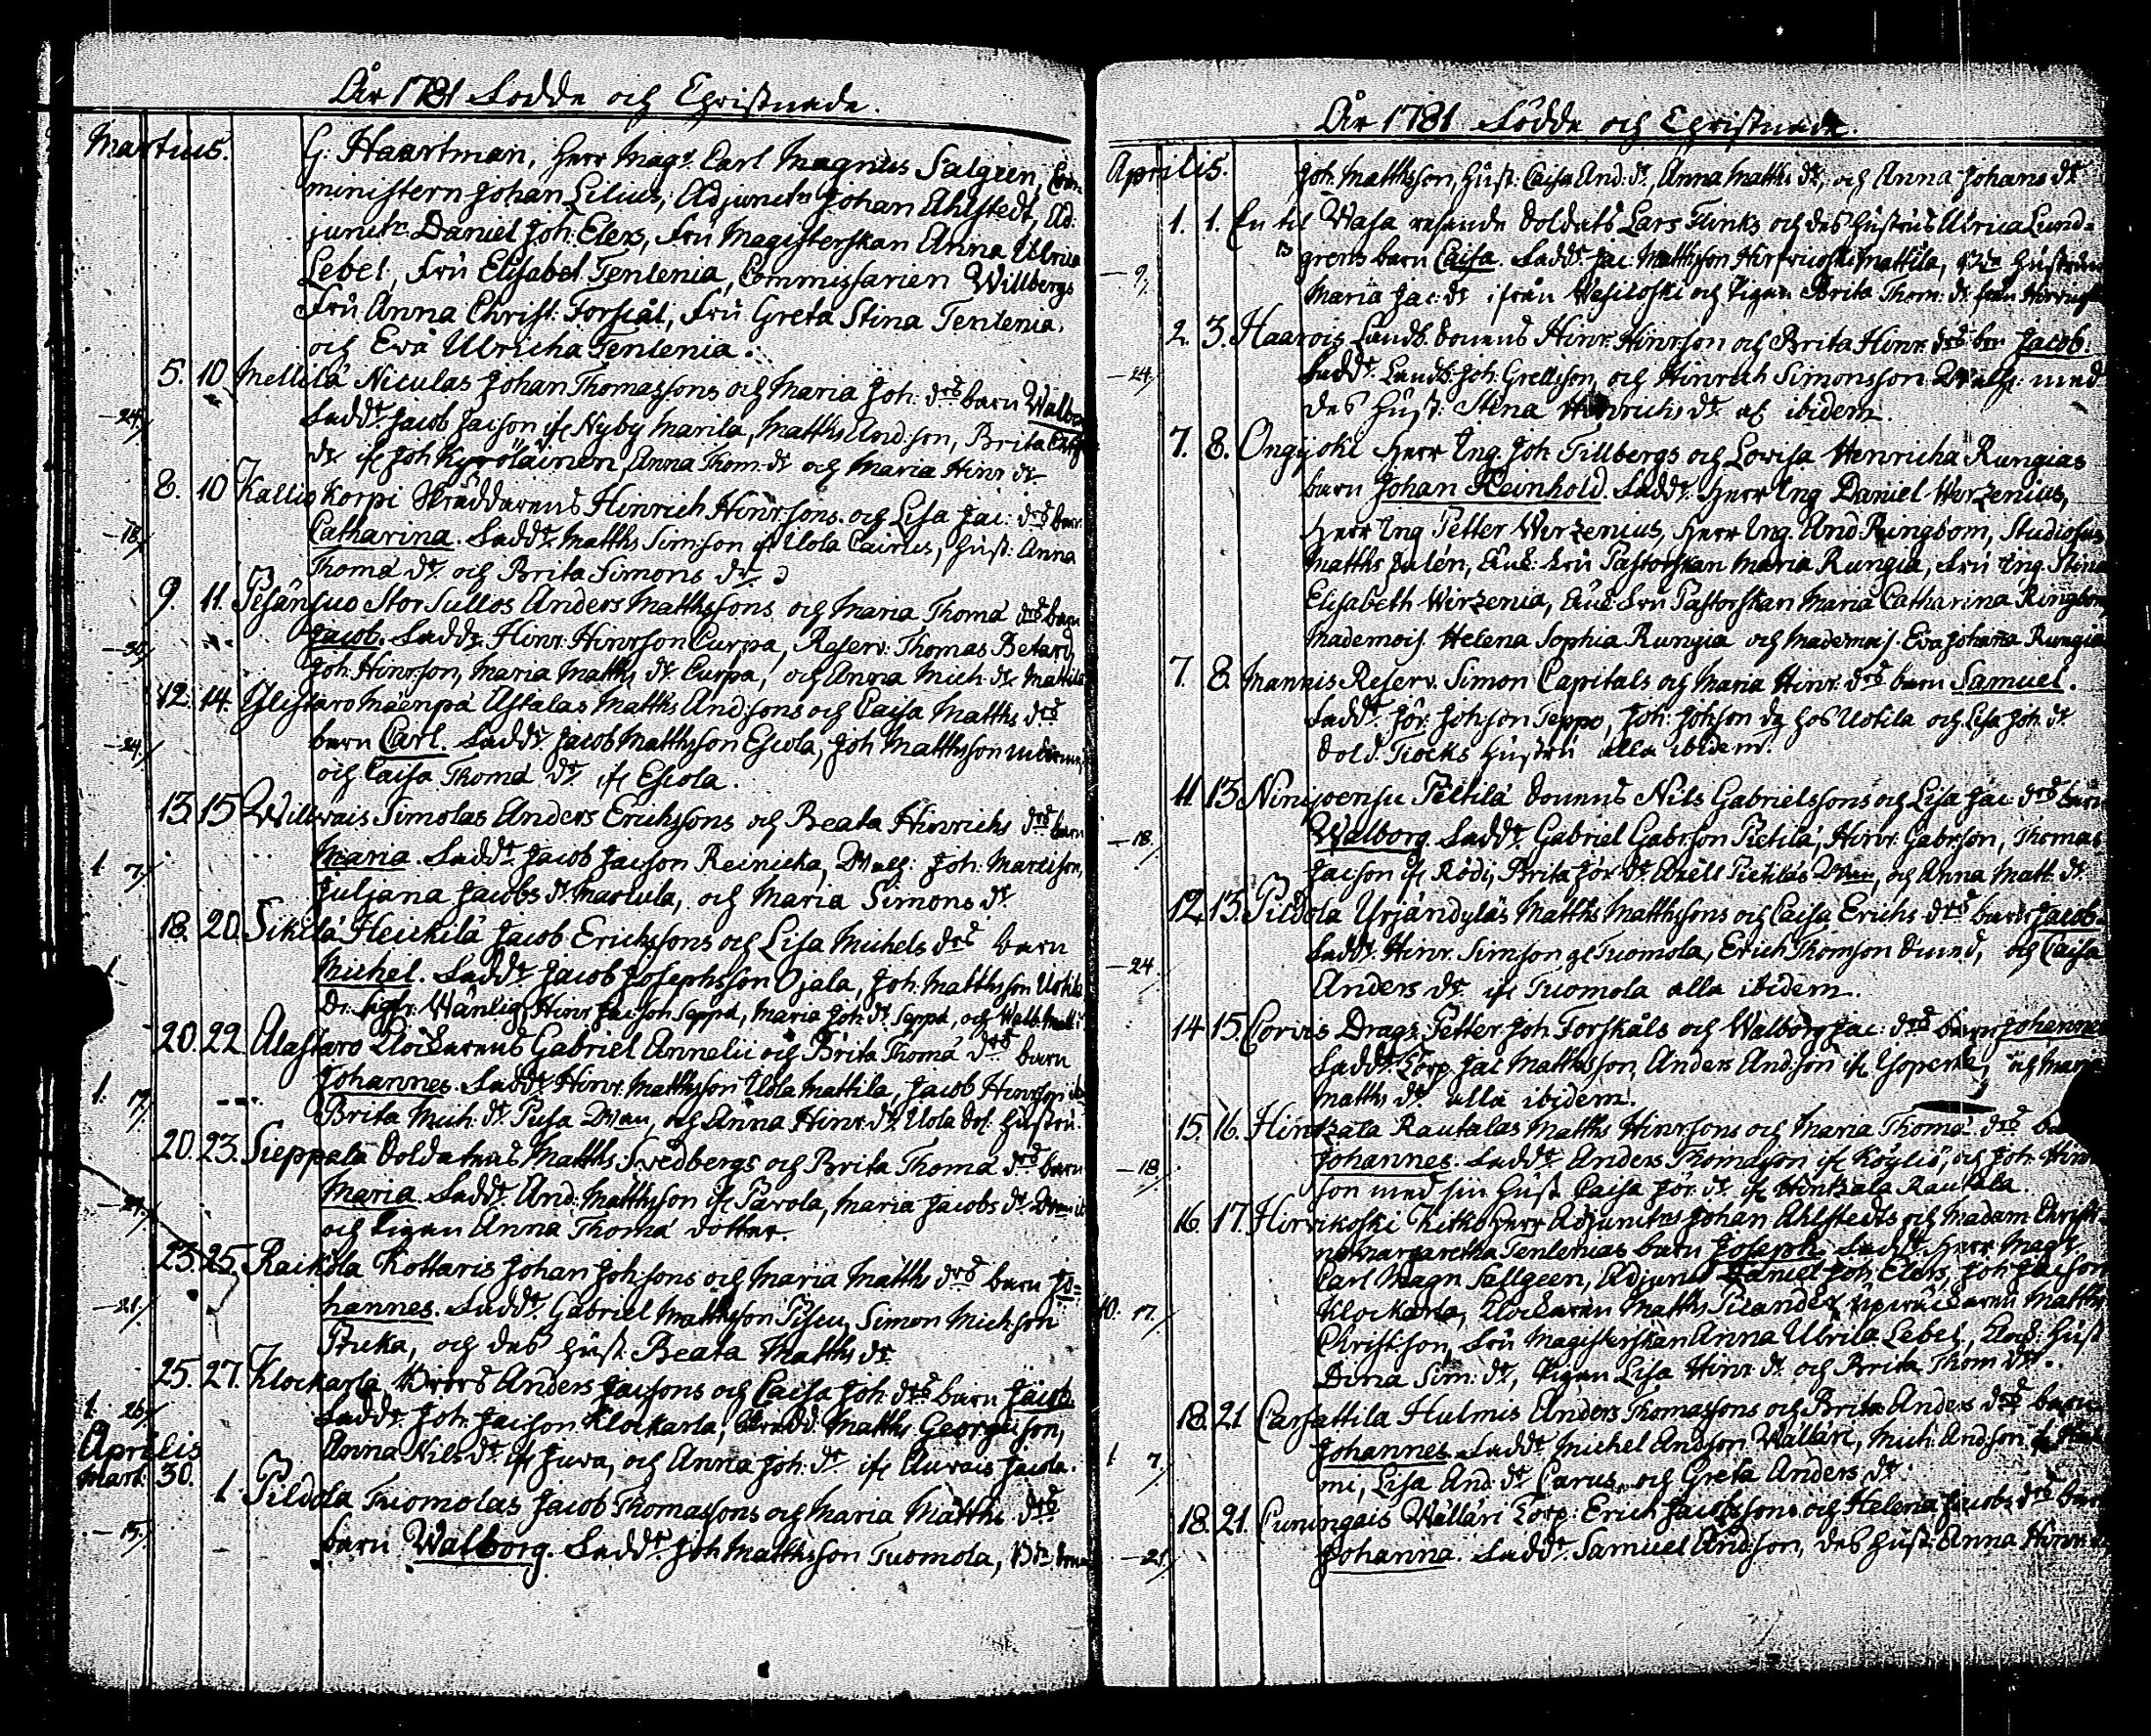 År 1781 Födde och Christnade.
Martius. G: Haartman, Herr Magr. Carl Magnus Salgren, Com
ministern Johan Lilius, Adjunctn Johan Ahlstedt, Ad:
junctn Daniel Joh: Elers, Fru Magisterskan Anna Ulrica
Lebel, Fru Elisabet Tenlenia, Commissarien Willbergs
Fru Anna Christ: Forskål, Fru Greta Stina Tenlenia.
och Eva Ulricha Tenlenia.
5. 10. Mellilä Niculas Johan Thomassons och Maria Joh: drs barn Walborg
—24. Fadd. Jacob Jacson if Nyby Marila, Matths And:son, Brita
dr if Joh: Kyröläinen, Anna Thom: dr och Maria Hinr dr
8. 10 Kallio Korpi Skräddarens Hinrich Hinr:sons och Lisa Jac: drs barn
—18. Catharina. Fadd. Matths Sim:son if Uola Cairus, Hust: Anna
Thoma dr. och Brita Simons dr.
9. 11. Pesänsuo Stor Sullos Anders Matthssons och Maria Thoma drs barn
—30. Jacob. Fadd. Hinr: Hinrson Curpa, Reserv: Thomas Betard,
Joh: Hinrson, Maria Matths dr. Curpa, och Anna Mich: dr. Mattila
12. 14. Ylistaro Mäenpä Ustalas Matths And:sons och Caisa Matths drs
—24. barn Carl. Fadd. Jacob Matthsson Escola, Joh Matthsson
och Caisa Thoma dr if Escola.
13. 15 Willvais Simolas Anders Erichssons och Beata Hinrichs drs barn
1 7. Maria. Fadd. Jacob Jacson Reinicka, Joh: Martisson,
Juljana Jacobs dr. Martula, och Maria Simons dr.
18. 20. Sikilä Heickilä Jacob Erichssons och Lisa Michels drs barn
1. Michel. Fadd. Jacob Josephsson Ojala, Joh: Matthsson Uotila
Wänlig, Hinr Jacson Seppä, Maria Joh: dr. Seppä, och Walb:
20. 22. Alastaro Klockarens Gabriel Annelii och Brita Thoma drs barn
1. 17. Johannes. Fadd. Hinr. Matthsson Uola Mattila, Jacob Hinrson
Brita Mich: dr. Pusa och Anna Hinr. dr. Uola Hustru.
20. 23. Sieppala Soldatens Matths Svedbergs och Brita Thoma drs barn
—24. Maria. Fadd. And: Matthsson if Parola, Maria Jacobs dr.
och Pigan Anna Thoma dotter.
23. 25. Raikola Kottaris Johan Joh:sons och Maria Matths drs barn Jo=
—21. hannes. Fadd. Gabriel Matthsson Piscu, Simon Michson
Stuka, och des hust: Beata Matths dr.
25. 27. Klockarla Anders Jacsons och Caisa Joh: drs barn Jacob.
1. 26. Fadd. Joh: Jacson Klockarla, Skrädd. Matths Georgiison,
Aprilis Anna Nils dr. if Juva, och Anna Joh: dr. if Auvais Jacola.
Mart: 30. 1. Pildola Tuomolas Jacob Thomassons och Maria Matths drs
—15. barn Walborg. Fadd. Joh Matthsson Tuomola,
År 1781 Födde och Christnade.
Aprilis. Joh: Matthsson, Hust: Caisa And: dr, Anna Matths dr, och Anna Johans dr
1. 1. En til Wasa resande Soldats Lars Flinks och des Hustrus Ulrica Lund=
—9. grens barn Caisa. Fadd. Jac: Matthsson Hirfvicoski Mattila, Hustrun
Maria Jac: dr ifrån Vesikoski och Pigan Brita Thom: dr. från
2. 3. Haarois Landb. Sonens Hinr: Hinrson och Brita Hinr. drs barn Jacob.
—24. Fadd. Landb: Joh: Grellsson, och Hinrich Simonsson med
des Hust: Stina Hinrichs dr. af ibidem.
7. 8. Ongijoki Herr Ing. Joh Tillbergs och Lowisa Henricha Rungias
barn Johan Reinhold. Fadd. Herr Ing Daniel Werzenius,
Herr Ing Petter Werzenius, Herr Ing. And: Ringbom, Studiosus
Matths Julén, Enk: Fru Pastorskan Maria Rungia, Fru Ing. Stina
Elisabeth Wirzenia, Enk: Fru Pastorskan Maria Catharina Ringbom
Mademois. Helena Sophia Rungia och Mademois. Eva Johanna Rungia
7. 8. Mannis Reserv. Simon Capitals och Maria Hinr. drs barn Samuel.
Fadd. Jör: Johson Teppo, Joh: Johson dg hos Uotila och Lisa Joh: dr.
Sold. Hustru alla ibidem.
11. 13 Ninijoensu Pietilä Sonens Nils Gabrielssons och Lisa Jac: drs barn
—18. Walborg. Fadd. Gabriel Gabrson Pietilä, Hinr: Gabr:son, Thomas
Jacson if Rödi, Brita Jör dr. och Anna Matt. dr.
12. 13. Pildola Yrjändyläs Matths Matthsons och Caisa Erichs drs barn Jacob.
—24. Fadd. Hinr. Simson gl Tuomola, Erich Thomson och Caisa
Anders dr. if Tuomola alla ibidem.
14 15. Corvis Drag: Petter Joh: Forskåls och Walborg Jac: drs barn Johannes
Fadd. Torp. Jac Matthsson, Anders And:son if och Maria
Matths dr. alla ibidem.
15. 16. Hinkzala Rautalas Matths Hinrsons och Maria Thoma drs barn
—18. Johannes. Fadd. Anders Thomasson if Köyliö, och Joh: Hinr
son med sin Hust Caisa Jör. dr. if Hinkzala Rautala.
16. 17. Hirvikoski Kitko Herr Adjunctens Johan Ahlstedts och Madam Christi=
na Margaretha Tenlenias barn Joseph. Fadd. Herr Magr.
Carl Magn Sallgeen, Adjunct Daniel Joh: Elers, Joh: Jacson
10. 17. Klockarla, Klockaren Matths Pilander, Matths
Christson, Fru Magisterskan Anna Ulrica Lebel, Klock: Hust
Dina Sim: dr, Pigan Lisa Hinr dr. och Brita Thom dr.
18. 21 Carsattila Hulmis Anders Thomassons och Brita Anders drs barn
1 7. Johannes. Fadd. Michel Andson Wällari, Mich: And:son
mi, Lisa And: dr Carus och Greta Anders dr.
18. 21. Cunungais Wällari Torp: Erich Jacobssons och Helena Jacobs drs barn
—21. Johanna. Fadd. Samuel And:son, des hust: Anna Hinr